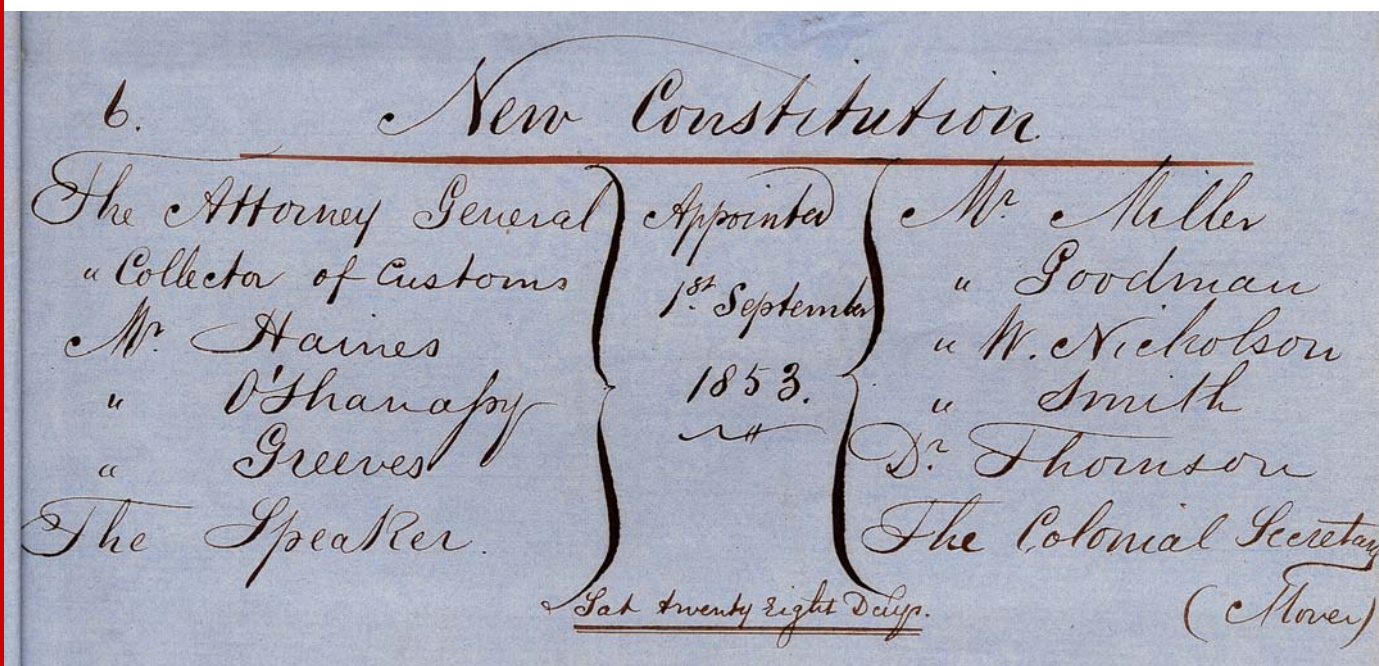 6. New Constitution
The Attorney General
" Collector of Customs
Mr. Haines
" O'Shanassy
" Greeves
The Speaker.
Appointed
1st. September
1853.
Mr. Miller
" Goodman
" W. Nicholson
" Smith
Dr. Thomson
The Colonial Secretary
(Mover)
Sat twenty Eight Days.